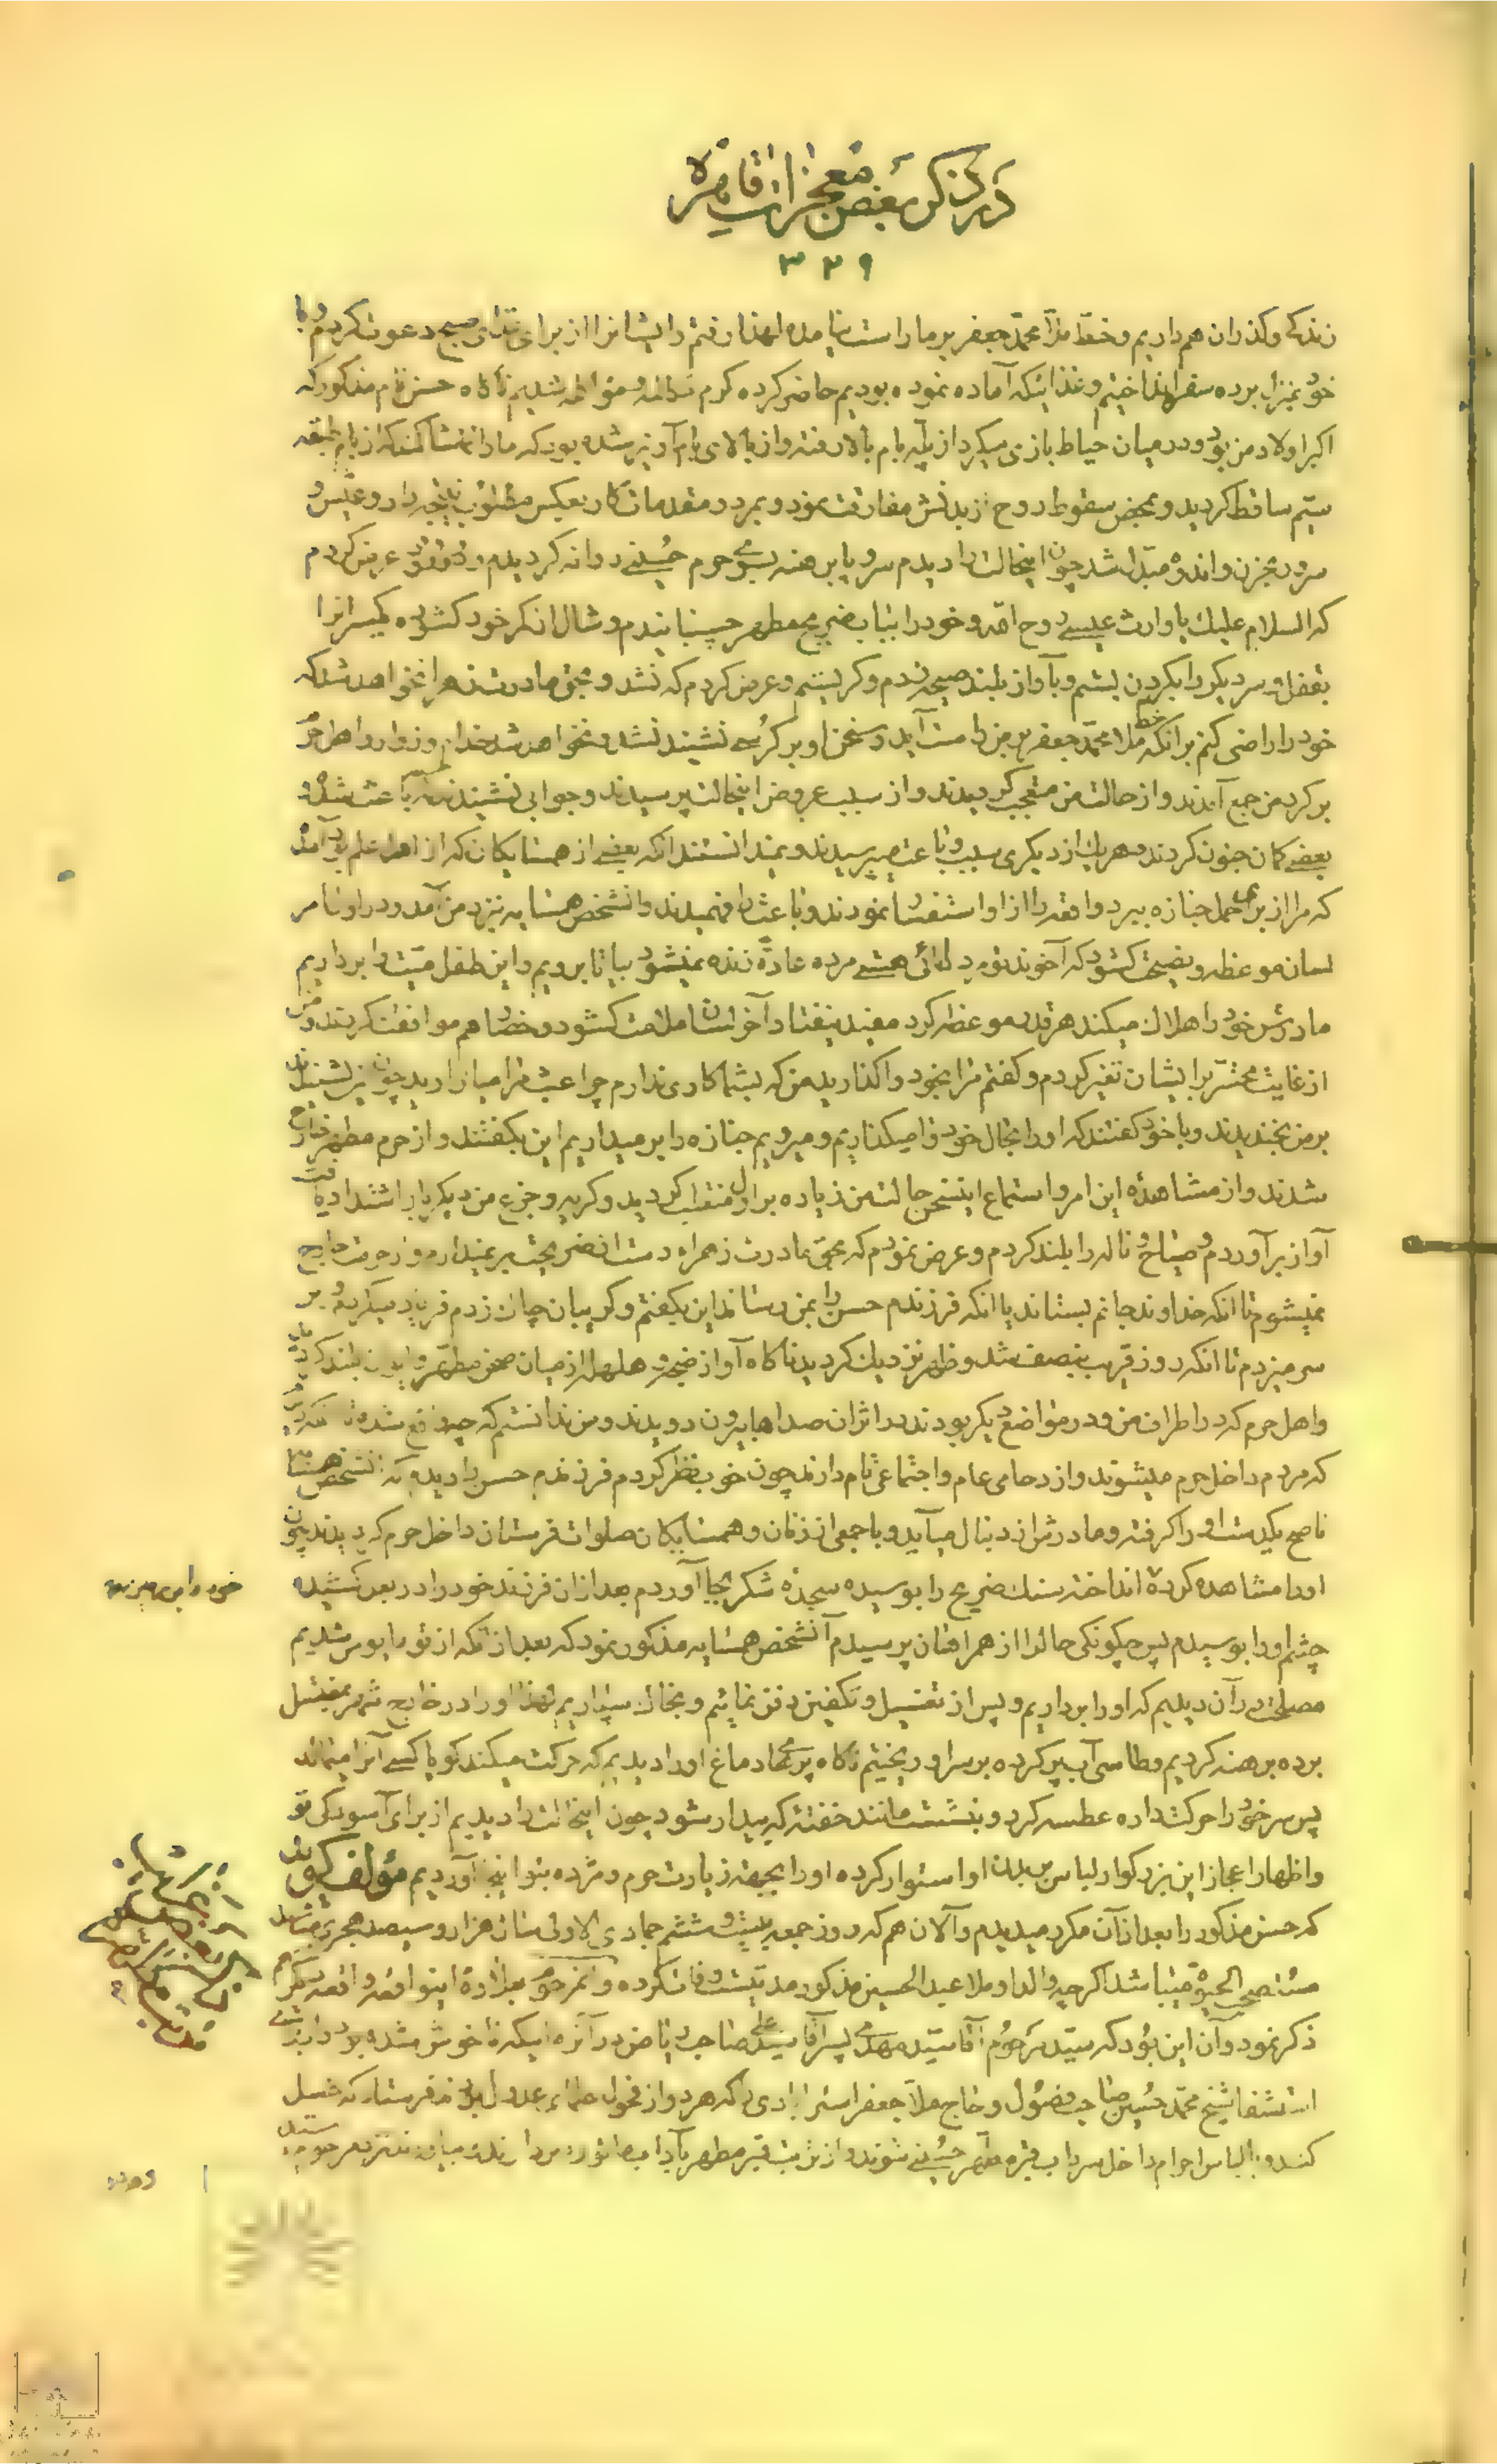 در ذکر بعض معجزات قاهره
۳۲۹
زندگی و گذران هم داریم و خط ملا محمد جعفر بر ما راست نیامده لهذا رفتم و ایشانرا از برای غذای صبح دعوت کردم و با
خود بمنزل برده سفره انداختیم و غذائیکه آماده نموده بودیم حاضر کرده گرم مکالمه و مؤاکله شدیم ناگاه حسن نام مذکور که
اکبر اولاد من بود و در میان حیاط بازی میکرد از پله بام بالا رفته و از بالای بام آویز شده بود که ما را تماشا کند که از بام طبقه
سیم ساقط گردید و بمحض سقوط روح از بدنش مفارقت نمود و بمرد و مقدمات کار بعکس مطلوب نتیجه داد و عیش و
سرور بحزن و اندوه مبدل شد چون اینحالت را دیدم سر و پا برهنه بسوی حرم حسینی روانه گردیدم و عرض کردم
که السلام علیك یا وارث عیسی روح الله و خود را بضریح مطهر چسبانیدم و شال از کمر خود گشوده یکسر آنرا
بقفل و سر دیگر را بگردن بستم و بآواز بلند صیحه زدم و گریستم و عرض کردم که نشد و بحق مادرت زهرا نخواهد شد که
خود را راضی کنم بر آنکه خط ملا محمد جعفر بر من راست آید و سخن او بر کرسی نشیند نشد و نخواهد شد خدام و زوار و اهل حرم
بر گرد من جمع آمدند و از حالت من متعجب گردیدند و از سبب عروض اینحالت پرسیدند و جوابی نشنیدند
بعضی گمان جنون کردند و هر یك از دیگری سبب و باعث میپرسیدند و نمیدانستند آنکه بعضی از همسایگان که از اهل علم بود آمد
که مرا از برای حمل جنازه ببرد واقعه را از او استفسار نمودند و باعث را فهمیدند و آنشخص همسایه نیز نزد من آمد و در اول امر
لسان موعظه و نصیحت گشود که آخوند تو مرد دانائی هستی مرده عادة زنده نمیشود بیا تا برویم و این طفل میت را برداریم
مادرش خود را هلاك میکند هر قدر موعظه کرد مفید نیفتاد آخر لسان ملامت گشود و حضار هم موافقت کردند و من
از غایت تحسر بر ایشان تغیر کردم و گفتم مرا بخود واگذارید من که بشما کاری ندارم چرا عبث مرا میازارید چون این بشنیدند
بر من بخندیدند و با خود گفتند که او را بحال خود وا میگذاریم و میرویم جنازه را بر میداریم این بگفتند و از حرم مطهر خارج
شدند و از مشاهده این امر و استماع این سخن حالت من زیاده بر اول منقلب گردید و گریه و جزع من دیگر بار اشتداد یافت
آواز بر آوردم و صیاح و ناله را بلند کردم و عرض نمودم که بحق مادرت زهراء دست از ضریحت بر نمیدارم و از حرمت خارج
نمیشوم تا آنکه خداوند جانم بستاند یا آنکه فرزندم حسن را بمن رساند این بگفتم و گریبان چاك زدم فریاد میکردم و بر
سر میزدم تا آنکه روز قریب بنصف شد و ظهر نزدیك گردید ناگاه آواز ضجه و هلهله از میان صحن مطهر و ایوان بلند گردید
و اهل حرم که در اطراف من و در مواضع دیگر بودند بر اثر آن صداها بیرون دویدند و من ندانستم که چه واقع شده
که مردم داخل حرم میشوند و ازدحامی عام و اجتماعی تام دارند چون خوب نظر کردم فرزندم حسن را دیدم که آنشخص همسایه
ناصح یکدست او را گرفته و مادرش از دنبال میآید و با جمعی از زنان و همسایگان صلوات فرستان داخل حرم گردیدند چون
او را مشاهده کرده انداخته سنك ضریح را بوسیده سجده شکر بجا آوردم بعد از آن فرزند خود را در بغل کشیده
خود را بر زمین
چشم او را بوسیدم پس چگونگی حالرا از همراهان پرسیدم آنشخص همسایه مذکور نمود که بعد از آنکه از تو مأیوس شدیم
مصلحت در آن دیدیم که او را برداریم و پس از تغسیل و تکفین دفن نمائیم و بخاك سپاریم لهذا او را در خارج شهر بمغتسل
برده برهنه کردیم و طاسی آب پر کرده بر سر او ریختیم ناگاه پره‌های دماغ او را دیدیم که حرکت میکند گویا کسی آنرا میمالد
پس سر خود را حرکت داده عطسه کرد و بنشست مانند خفته که بیدار شود چون اینحالت را دیدیم از برای آسودگی تو
و اظهار اعجاز این بزرگوار لباس بر بدن او استوار کرده او را بجهة زیارت حرم و مژده بتو اینجا آوردیم مؤلف گوید
که حسن مذکور را بعد از آن مکرر میدیدم و آلان هم که روز جمعه بیست و ششم جمادی الاولی سنه هزار و سیصد هجری میباشد
مستصحب الحیوة میباشد اگر چه والد او ملا عبد الحسین مذکور مدتیست وفات کرده و آنمرحوم بعد از این واقعه واقعه دیگری هم
ذکر نمود و آن این بود که سید مرحوم آقا سید مهدی پسر آقا سید علی صاحب ریاض در آنزه ناخوش شده بود و از برای
استشفا شیخ محمد حسین صاحب فصول و حاج ملا جعفر استرابادی را که هر دو از فحول علماء عدول بودند فرستاد که غسل
کنند و با لباس احرام داخل سرداب قبر مطهر حسینی شوند و از تربت قبر مطهر بآداب مأثوره بردارند و بیاورند نزد مرحوم سید